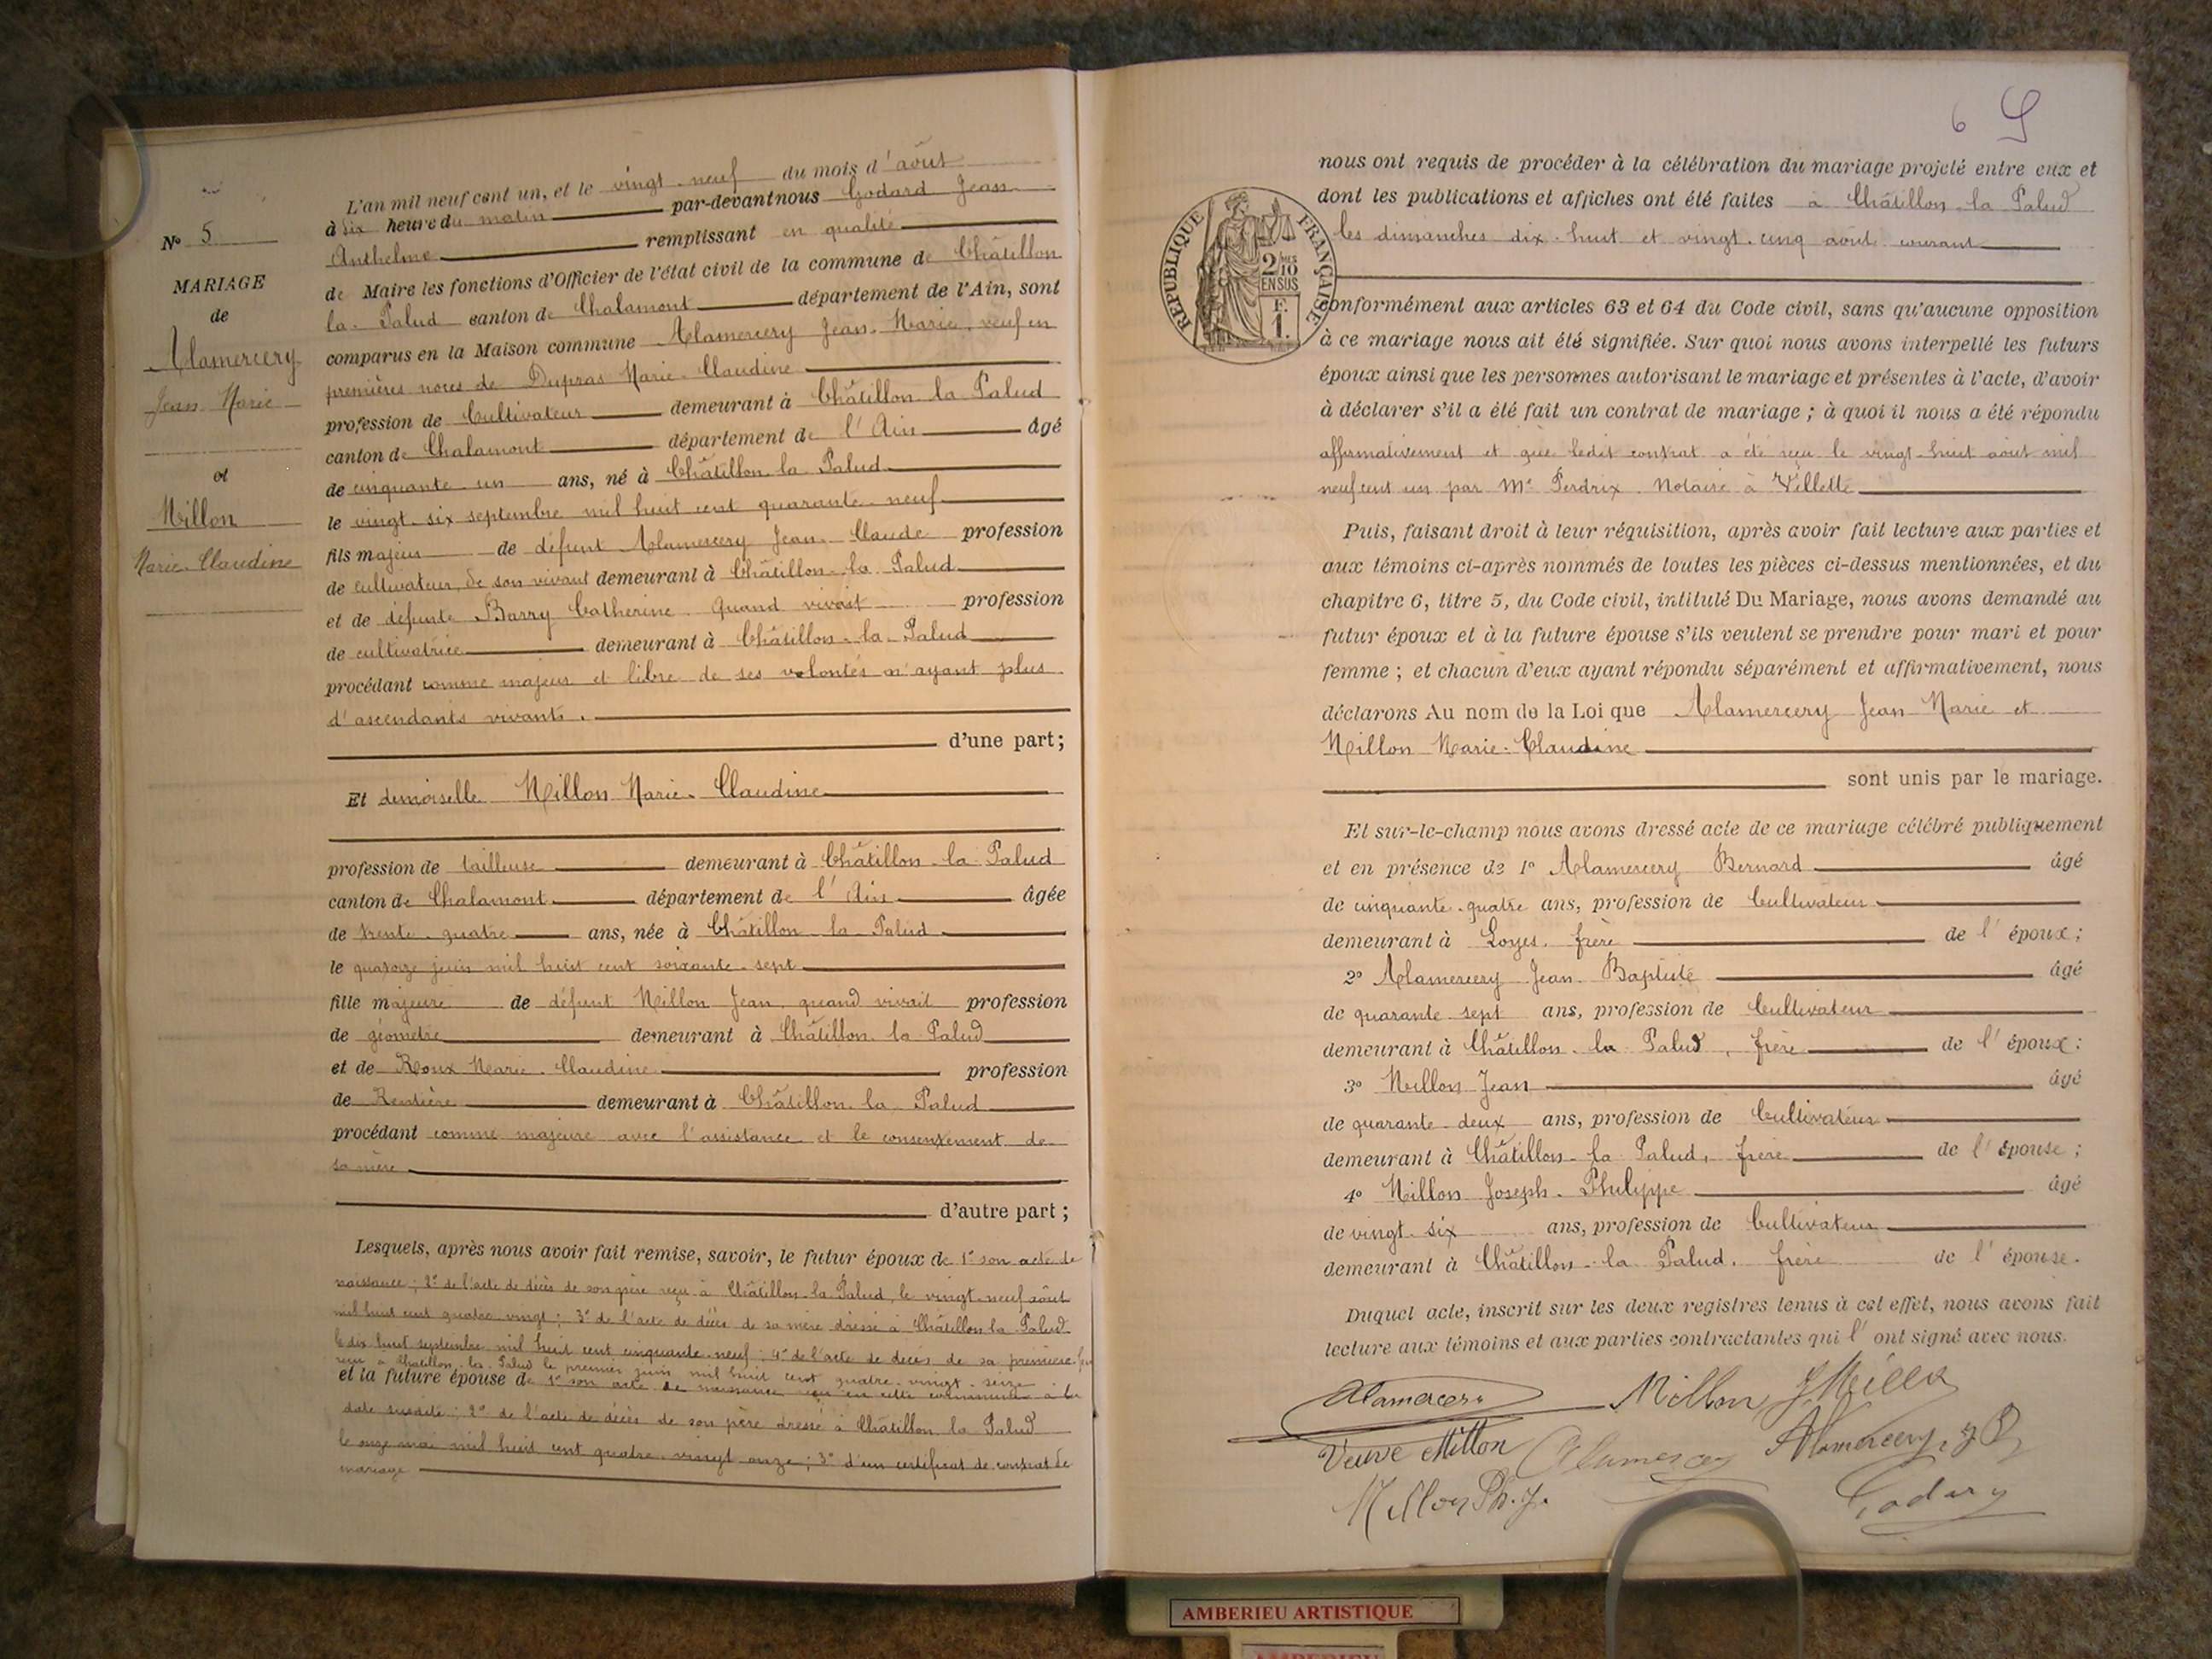 N° 5
MARIAGE
de
Alamercery
Jean Marie
et
Millon
Marie-Claudine
L'an mil neuf cent un, et le vingt-neuf du mois d'août
à six heure du matin par-devant nous Godard Jean
Anthelme remplissant en qualité
de Maire les fonctions d'Officier de l'état civil de la commune de Châtillon
la Palud canton de Chalamont département de l'Ain, sont
comparus en la Maison commune Alamercery Jean-Marie, veuf en
premières noces de Dupras Marie-Claudine
profession de Cultivateur demeurant à Châtillon la Palud
canton de Chalamont département de l'Ain âgé
de cinquante un ans, né à Châtillon la Palud
le vingt-six septembre mil huit cent quarante-neuf
fils majeur de défunt Alamercery Jean-Claude profession
de cultivateur de son vivant demeurant à Châtillon-la-Palud
et de défunte Barry Catherine quand vivait profession
de cultivatrice demeurant à Châtillon-la-Palud
procédant comme majeur et libre de ses volontés n'ayant plus
d'ascendants vivants.
d'une part;
Et demoiselle Millon Marie-Claudine
profession de tailleuse demeurant à Châtillon-la Palud
canton de Chalamont département de l'Ain âgée
de trente-quatre ans, née à Châtillon-la-Palud
le quatorze juin mil huit cent soixante-sept
fille majeure de défunt Millon Jean, quand vivait profession
de géomètre demeurant à Châtillon la Palud
et de Roux Marie-Claudine profession
de Rentière demeurant à Châtillon la Palud
procédant comme majeure avec l'assistance et le consentement de
sa mère
d'autre part;
Lesquels, après nous avoir fait remise, savoir, le futur époux de 1° son acte de
naissance; 2° de l'acte de décès de son père reçu à Châtillon-la-Palud, le vingt-neuf août
mil huit cent quatre-vingt; 3° de l'acte de décès de sa mère dressé à Châtillon la Palud
le dix huit septembre mil huit cent cinquante-neuf; 4° de l'acte de décès de sa première
reçu à Châtillon-la-Palud le premier juin mil huit cent quatre-vingt-seize
et la future épouse de 1° son acte de naissance reçu en cette commune à la
date susdite; 2° de l'acte de décès de son père dressé à Châtillon la Palud
le onze mai mil huit cent quatre-vingt onze; 3° d'un certificat de contrat de
mariage
6
nous ont requis de procéder à la célébration du mariage projeté entre eux et
dont les publications et affiches ont été faites à Châtillon-la Palud
les dimanches dix-huit et vingt-cinq août courant
RÉPUBLIQUE FRANÇAISE
2/10 EN SUS
F. 1.
conformément aux articles 63 et 64 du Code civil, sans qu'aucune opposition
à ce mariage nous ait été signifiée. Sur quoi nous avons interpellé les futurs
époux ainsi que les personnes autorisant le mariage et présentes à l'acte, d'avoir
à déclarer s'il a été fait un contrat de mariage; à quoi il nous a été répondu
affirmativement et que ledit contrat a été reçu le vingt-huit août mil
neuf cent un par Me Perdrix, Notaire à Villette
Puis, faisant droit à leur réquisition, après avoir fait lecture aux parties et
aux témoins ci-après nommés de toutes les pièces ci-dessus mentionnées, et du
chapitre 6, titre 5, du Code civil, intitulé Du Mariage, nous avons demandé au
futur époux et à la future épouse s'ils veulent se prendre pour mari et pour
femme; et chacun d'eux ayant répondu séparément et affirmativement, nous
déclarons Au nom de la Loi que Alamercery Jean-Marie et
Millon Marie-Claudine
sont unis par le mariage.
Et sur-le-champ nous avons dressé acte de ce mariage célébré publiquement
et en présence de 1° Alamercery Bernard âgé
de cinquante-quatre ans, profession de Cultivateur
demeurant à Loyes, frère de l'époux;
2° Alamercery Jean-Baptiste âgé
de quarante-sept ans, profession de Cultivateur
demeurant à Châtillon-la Palud, frère de l'époux;
3° Millon Jean âgé
de quarante-deux ans, profession de Cultivateur
demeurant à Châtillon-la Palud, frère de l'épouse;
4° Millon Joseph-Philippe âgé
de vingt-six ans, profession de Cultivateur
demeurant à Châtillon-la Palud, frère de l'épouse.
Duquel acte, inscrit sur les deux registres tenus à cet effet, nous avons fait
lecture aux témoins et aux parties contractantes qui l'ont signé avec nous.
Alamercery Millon J Millon
Veuve Millon Alamercery Alamercery J B
Millon Ph. J. Godard
AMBERIEU ARTISTIQUE
AMBERIEU